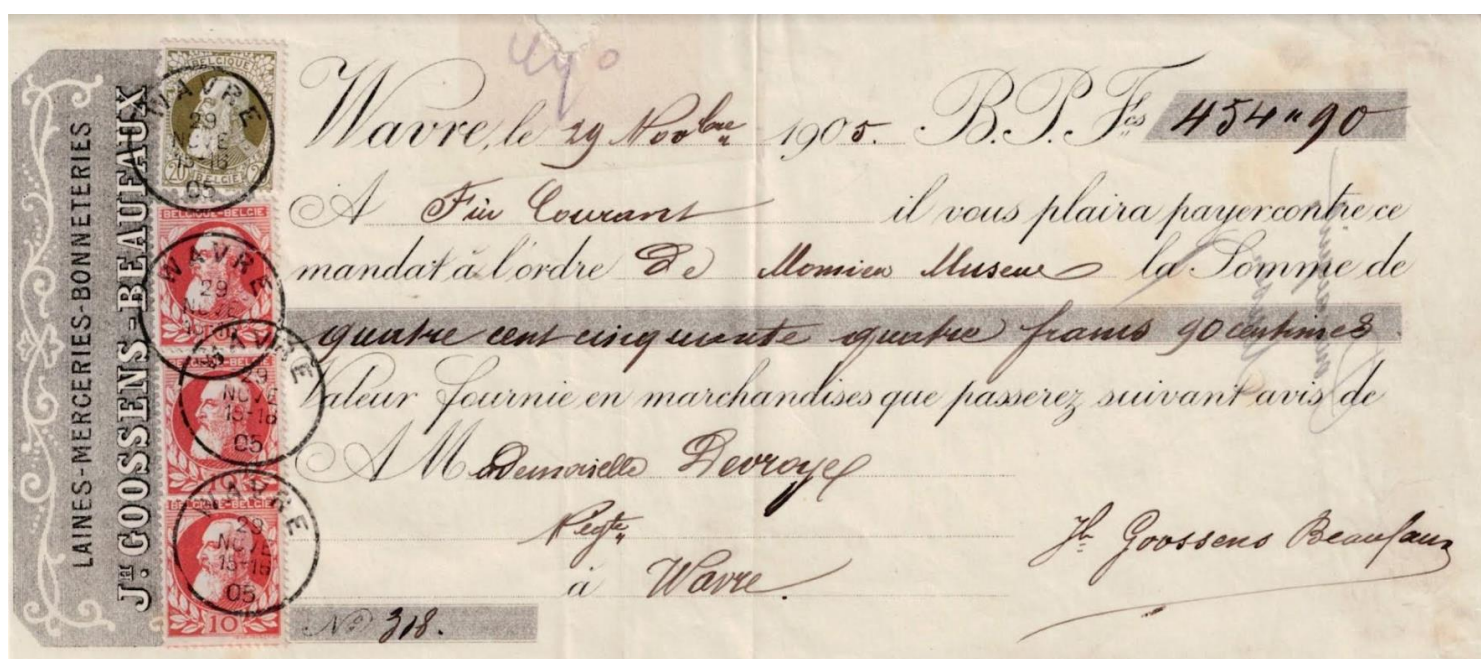 LAINES-MERCERIES-BONNETERIES
JH GOOSSENS-BEAUFAUX
BELGIQUE
20 BELGIE 20
WAVRE
29
NOVE
15-16
05
BELGIQUE-BELGIE
WAVRE
29
NOVE
BELGIQUE-BELGIE
WAVRE
29
NOVE
15-16
05
BELGIQUE-BELGIE
WAVRE
29
NOVE
15-16
05
10
Wavre, le 29 Novbre 1905. B.P. Fcs 454"90
A Fin Courant il vous plaira payer contre ce
mandat à l'ordre De Monsieur la Somme de
quatre cent cinquante quatre francs 90 centimes
Valeur fournie en marchandises que passerez suivant avis de
A Mademoiselle Devroye
Négte
à Wavre.
Jh Goossens Beaufaux
No 318.